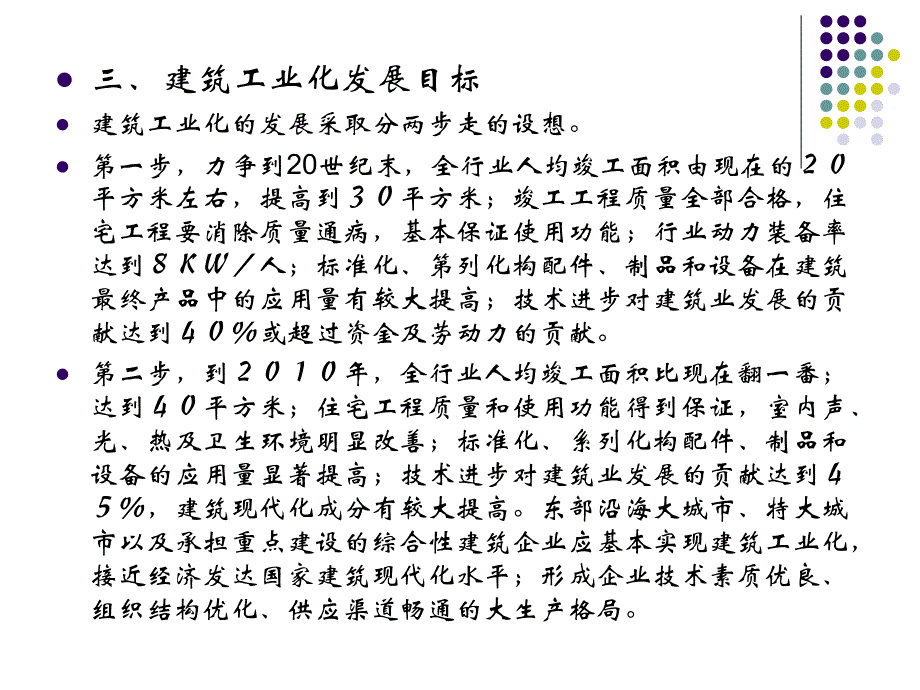 三、建筑工业化发展目标
建筑工业化的发展采取分两步走的设想。
第一步，力争到20世纪末，全行业人均竣工面积由现在的２０
平方米左右，提高到３０平方米；竣工工程质量全部合格，住
宅工程要消除质量通病，基本保证使用功能；行业动力装备率
达到８ＫＷ／人；标准化、第列化构配件、制品和设备在建筑
最终产品中的应用量有较大提高；技术进步对建筑业发展的贡
献达到４０％或超过资金及劳动力的贡献。
第二步，到２０１０年，全行业人均竣工面积比现在翻一番；
达到４０平方米；住宅工程质量和使用功能得到保证，室内声、
光、热及卫生环境明显改善；标准化、系列化构配件、制品和
设备的应用量显著提高；技术进步对建筑业发展的贡献达到４
５％，建筑现代化成分有较大提高。东部沿海大城市、特大城
市以及承担重点建设的综合性建筑企业应基本实现建筑工业化，
接近经济发达国家建筑现代化水平；形成企业技术素质优良、
组织结构优化、供应渠道畅通的大生产格局。